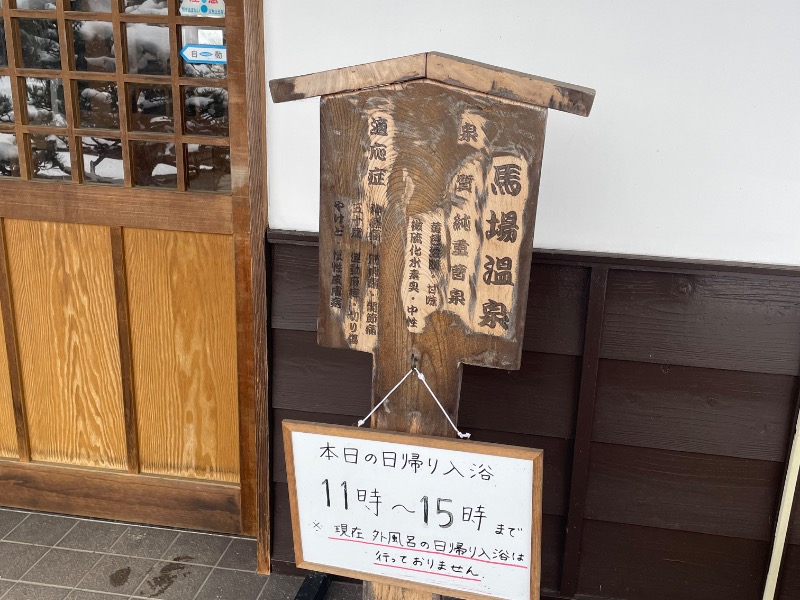 自動
馬場温泉
泉質 純重曹泉
黄色透明・甘味
微硫化水素臭・中性
適応症
神経痛・関節痛
五十肩・運動麻痺・切り傷
やけど・慢性皮膚病
本日の日帰り入浴
11時～15時まで
※現在 外風呂の日帰り入浴は
行っておりません。